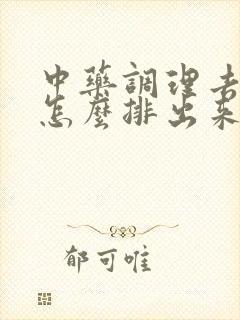 中藥調理
怎麼排出来
郁可唯